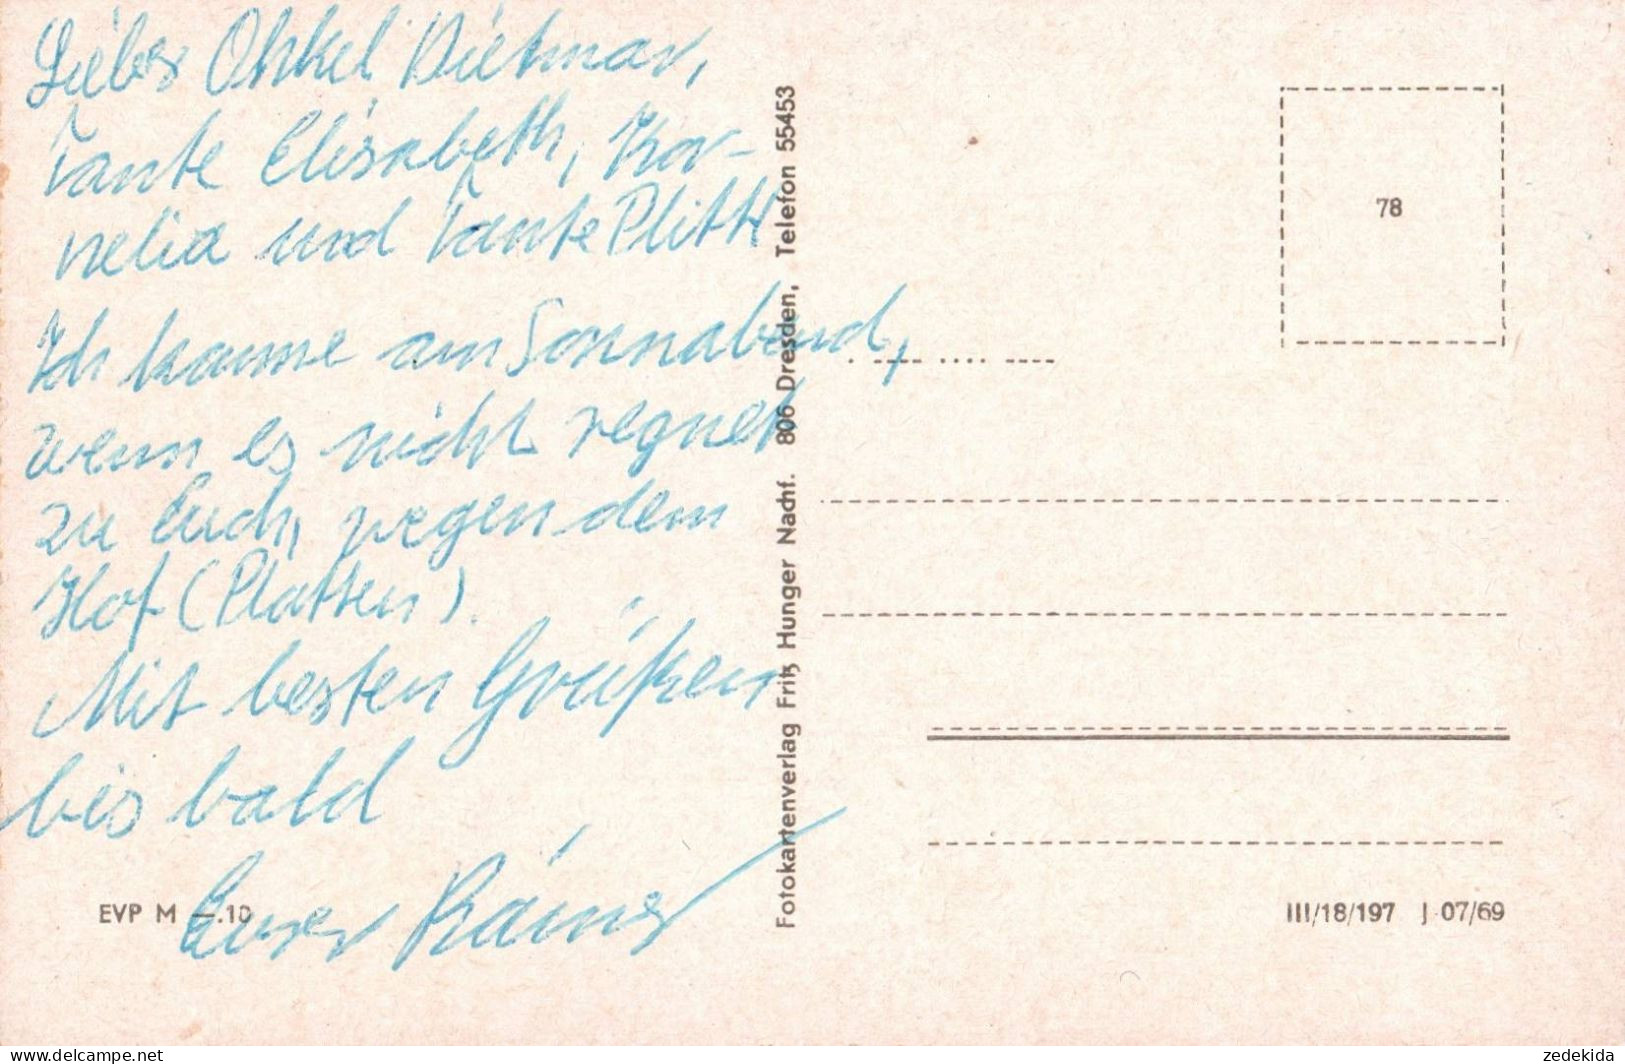 Lieber Onkel Dietmar,
Tante Elisabeth, Kor-
nelia und Tante Plitt
Ich komme am Sonnabend,
wenn es nicht regnet
zu Euch, wegen dem
Hof (Platten).
Mit besten Grüßen
bis bald
Euer Rainer
EVP M —.10
Fotokartenverlag Fritz Hunger Nachf. 806 Dresden, Telefon 55453
78
III/18/197 J 07/69
www.delcampe.net
zedekida